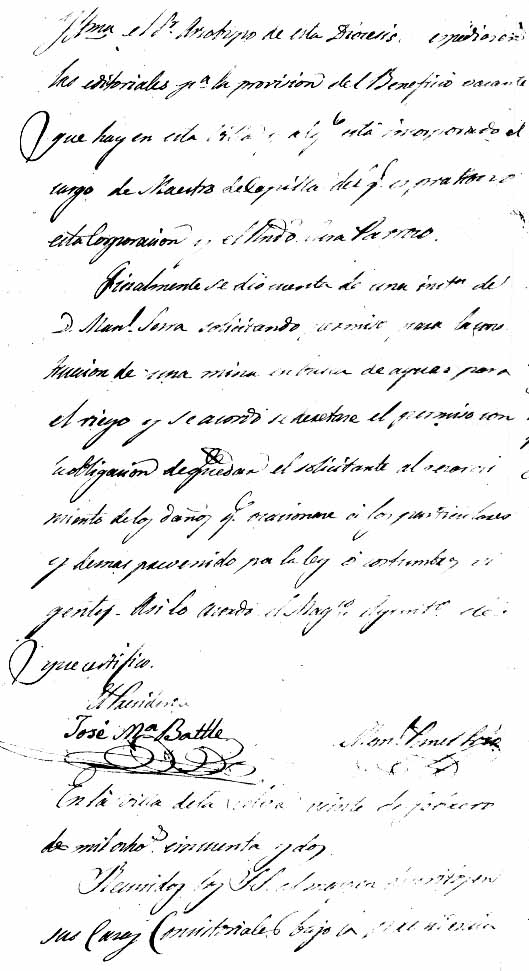 Yltma el Sr. Arzobispo de esta Diócesis expidiesen
los editoriales pa. la provision del Beneficio vacante
que hay en esta Villa y al q.e está incorporado el
cargo de Maestro de Capilla del q.e es
esta Corporacion y el Rndo. Cura Parroco.
Finalmente se dió cuenta de una inst.a de
D. Man.l Serra solicitando permiso para la cons
truccion de una mina en busca de aguas para
el riego y se acordó se decretase el permiso con
la obligacion de quedar el solicitante al resarci
miento de los daños q.e ocasionare á los particulares
y demas prevenido por la ley ó costumbres vi
gentes. Asi lo acordó el Mag.co Ayunt.o de
que certifico.
El Presidente
José Ma. Batlle
En la villa de la Selva veinte de
de mil ocho.s cincuenta y dos
Reunidos los SS. al margen escritos en
sus Casas Consistoriales bajo la presidencia